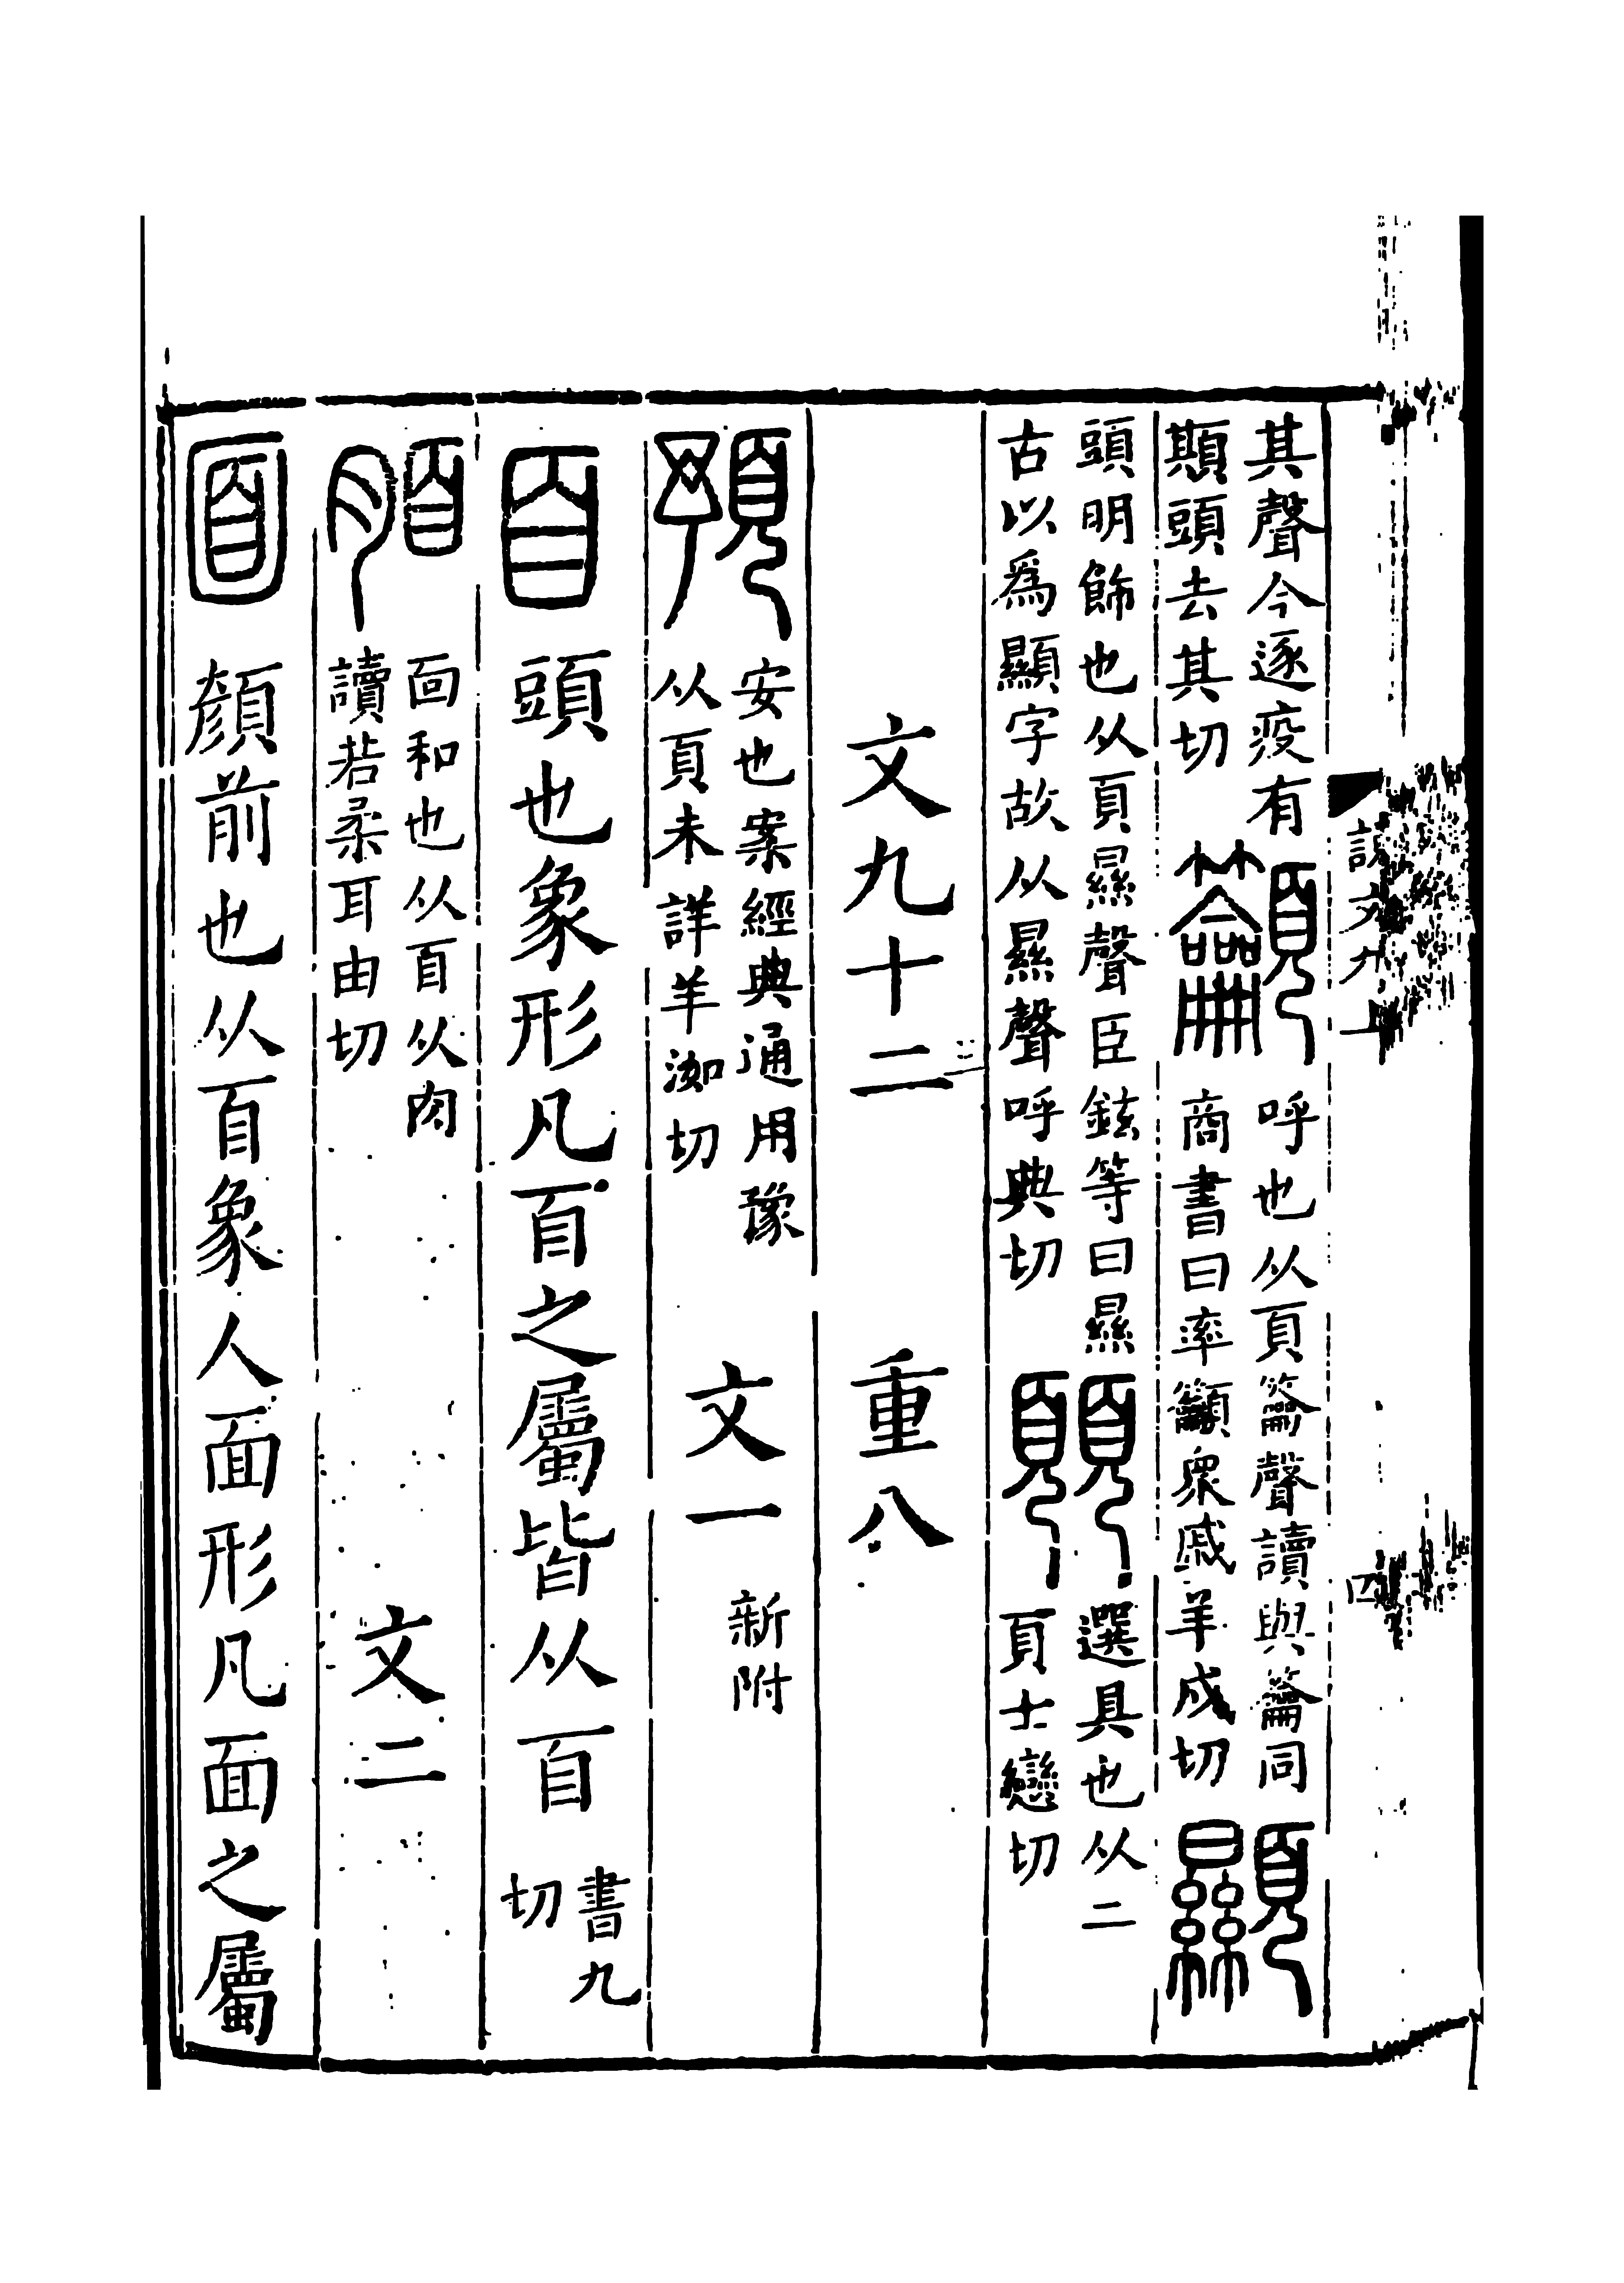 說文九上 四
其聲今逐疫有
䫏頭去其切
籲
呼也从頁籥聲讀與籥同
商書曰率籲眾戚羊戍切
顯
頭明飾也从頁㬎聲臣鉉等曰㬎
古以爲顯字故从㬎聲呼典切
𩔊
選具也从二
頁士戀切
文九十二 重八
預
安也案經典通用豫
从頁未詳羊洳切
文一 新附
𦣻 頭也象形凡𦣻之屬皆从𦣻 書九切
脜
面和也从𦣻从肉
讀若柔耳由切
文二
面 顏前也从𦣻象人面形凡面之屬